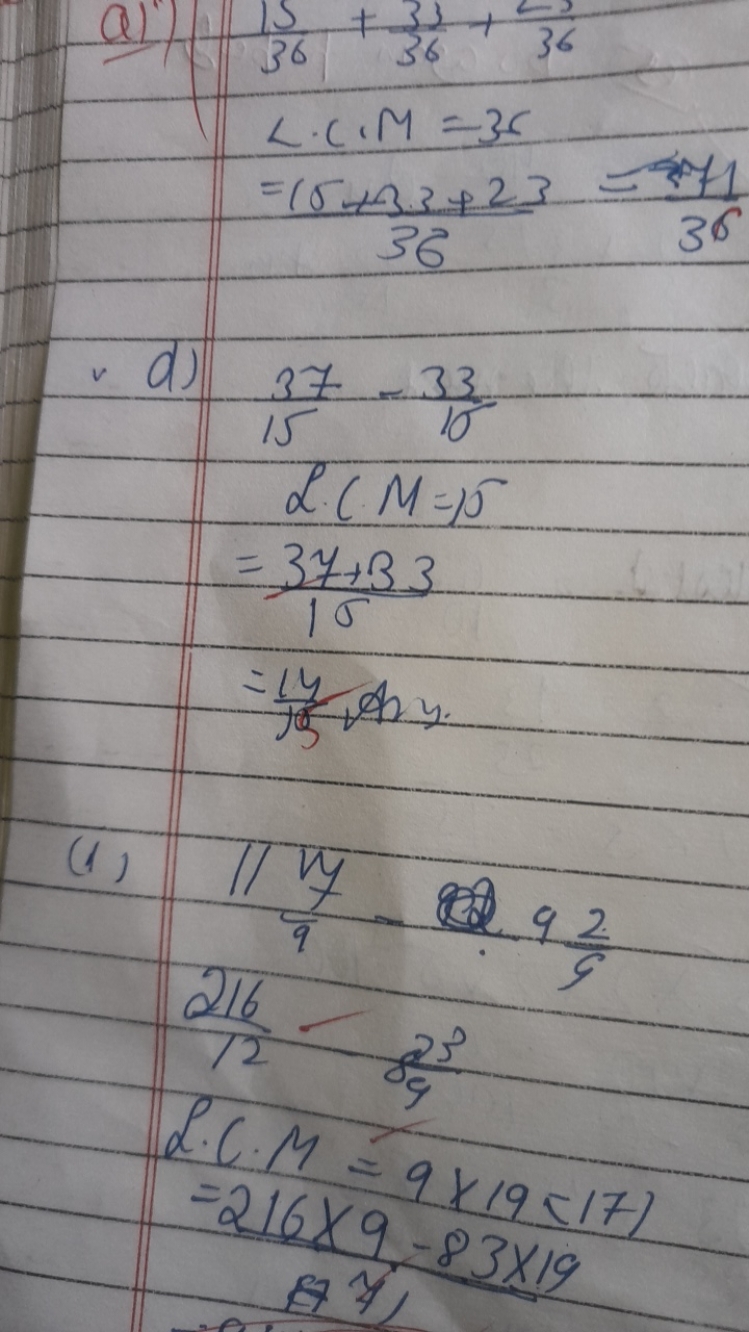 a) 15/36 + 33/36 + 23/36
L.C.M = 36
= 15+33+23/36 = 71/36
d) 37/15 - 33/15
L.C.M = 15
= 37+33/15
= 14/15 Ans.
(1) 11 /9 - 9 2/9
216/12 83/9
L.C.M = 9 X 19 = 171
= 216 X 9 - 83 X 19
171